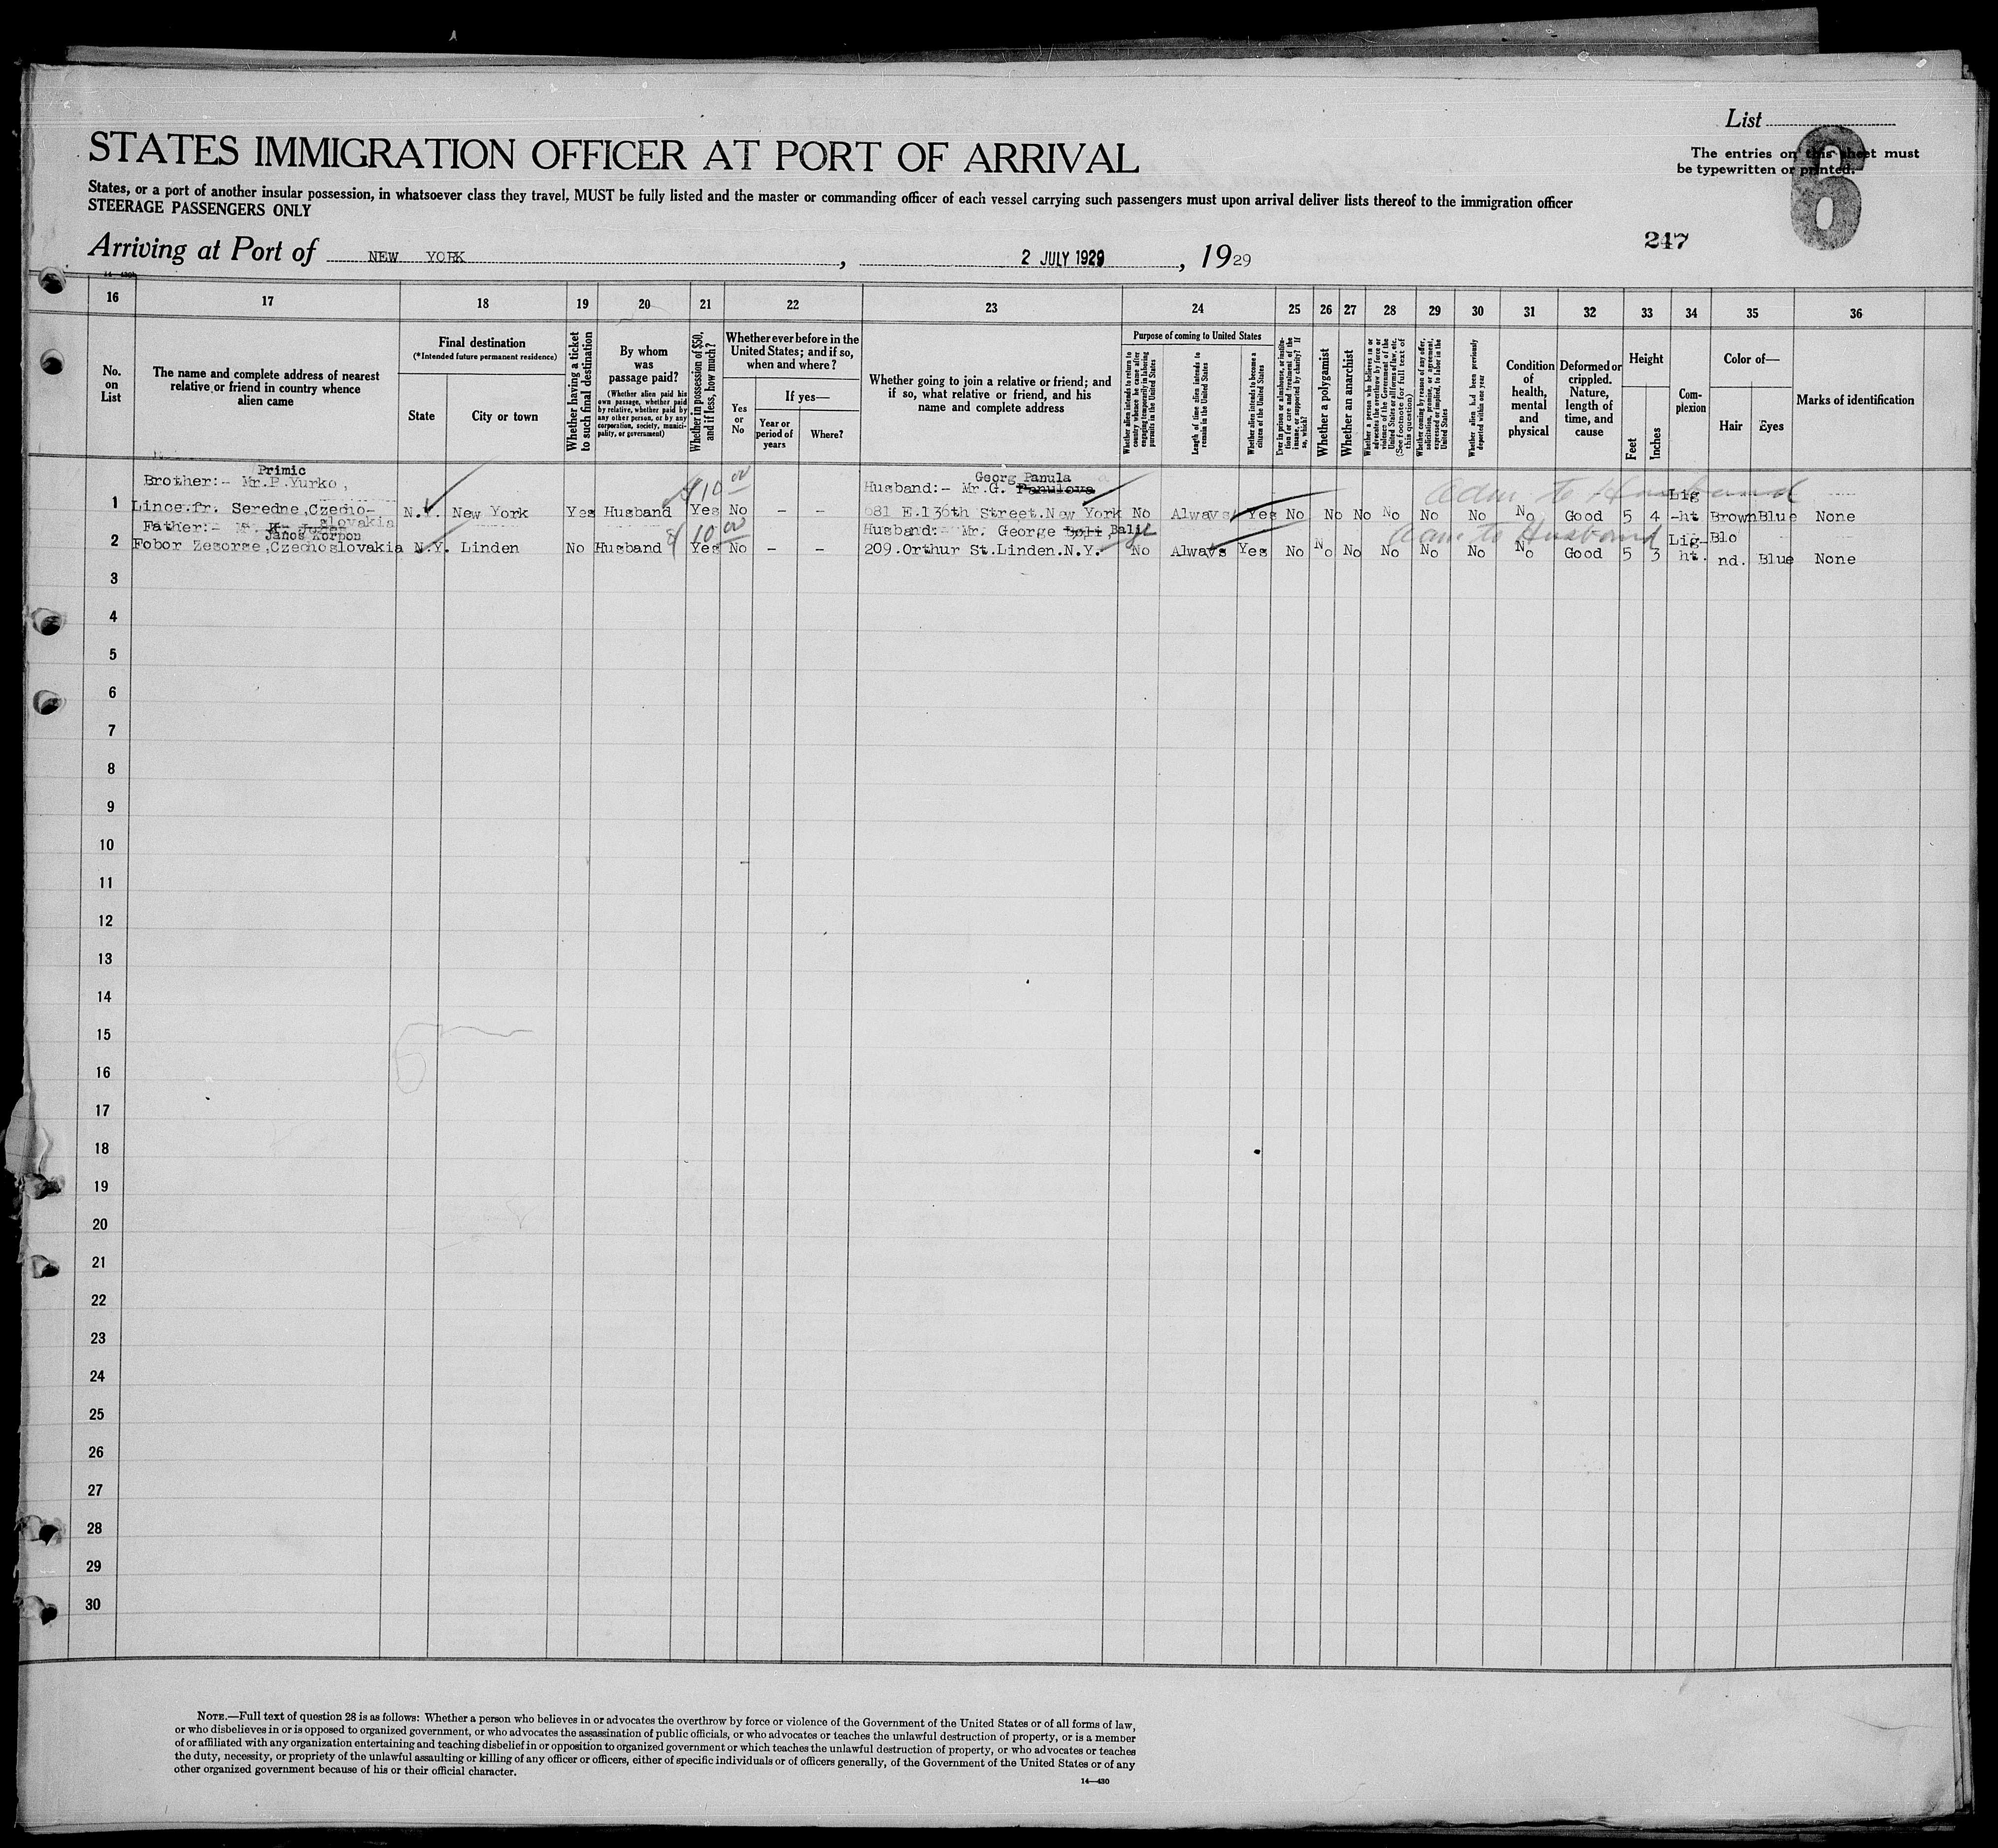 List
6
STATES IMMIGRATION OFFICER AT PORT OF ARRIVAL
The entries on this sheet must
be typewritten or printed.
States, or a port of another insular possession, in whatsoever class they travel, MUST be fully listed and the master or commanding officer of each vessel carrying such passengers must upon arrival deliver lists thereof to the immigration officer
STEERAGE PASSENGERS ONLY
247
Arriving at Port of NEW YORK, 2 JULY 1929, 1929
16 17 18 19 20 21 22 23 24 25 26 27 28 29 30 31 32 33 34 35 36
No. on List
The name and complete address of nearest relative or friend in country whence alien came
Final destination
(*Intended future permanent residence)
State
City or town
Whether having a ticket to such final destination
By whom was passage paid?
(Whether alien paid his own passage, whether paid by relative, whether paid by any other person, or by any corporation, society, municipality, or government)
Whether in possession of $50, and if less, how much?
Whether ever before in the United States; and if so, when and where?
Yes or No
If yes—
Year or period of years
Where?
Whether going to join a relative or friend; and if so, what relative or friend, and his name and complete address
Purpose of coming to United States
Whether alien intends to return to country whence he came after engaging temporarily in laboring pursuits in the United States
Length of time alien intends to remain in the United States
Whether alien intends to become a citizen of the United States
Ever in prison or almshouse, or institution for care and treatment of the insane, or supported by charity? If so, which?
Whether a polygamist
Whether an anarchist
Whether a person who believes in or advocates the overthrow by force or violence of the Government of the United States or all forms of law, etc. (See footnote for full text of this question)
Whether coming by reason of any offer, solicitation, promise, or agreement, expressed or implied, to labor in the United States
Whether alien had been previously deported within one year
Condition of health, mental and physical
Deformed or crippled. Nature, length of time, and cause
Height
Feet
Inches
Complexion
Color of—
Hair
Eyes
Marks of identification
Primic
Brother:- Mr.P.Yurko,
Georg Panula
Husband:- Mr.G. Panulova
Adm. to Husband
Lig
1 Lince.fr. Seredne,Czecho- N.Y. New York Yes Husband Yes 10 00 No - - 681 E.136th Street.New York No Always Yes No No No No No No No Good 5 4 -ht Brown Blue None
slovakia
Father:-
Janos Korpon
Husband: Mr. George Balic
Adm. to Husband
Lig- Blo
2 Fobor Zesorse,Czechoslovakia N.Y. Linden No Husband Yes 10 00 No - - 209.Orthur St.Linden.N.Y. No Always Yes No No No No No No No Good 5 3 ht. nd. Blue None
3
4
5
6
7
8
9
10
11
12
13
14
15
16
17
18
19
20
21
22
23
24
25
26
27
28
29
30
NOTE.—Full text of question 28 is as follows: Whether a person who believes in or advocates the overthrow by force or violence of the Government of the United States or of all forms of law,
or who disbelieves in or is opposed to organized government, or who advocates the assassination of public officials, or who advocates or teaches the unlawful destruction of property, or is a member
of or affiliated with any organization entertaining and teaching disbelief in or opposition to organized government or which teaches the unlawful destruction of property, or who advocates or teaches
the duty, necessity, or propriety of the unlawful assaulting or killing of any officer or officers, either of specific individuals or of officers generally, of the Government of the United States or of any
other organized government because of his or their official character.
14—430